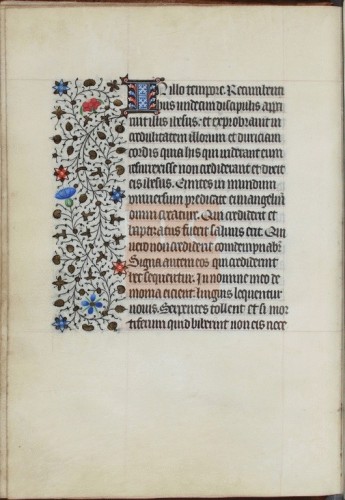 In illo tempore. Recumbenti
bus undecim discipulis appa
ruit illis ihesus: et exprobravit in
credulitatem illorum et duriciam
cordis quia his qui viderant eum
resurrexisse non crediderant et dixit
eis ihesus. Euntes in mundum
universum predicate evangelium
omni creature. Qui crediderit et
baptizatus fuerit salvus erit. Qui
vero non crediderit condempnabitur.
Signa autem eos qui crediderint
hec sequentur. In nomine meo de
monia eicient. linguis loquentur
novis. Serpentes tollent et si mor
tiferum quid biberint non eis noce